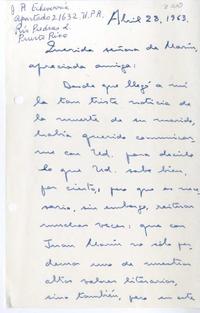 J. A. Echeverría
Apartado 21632. U.P.R.
Río Piedras
Puerto Rico
Abril 28, 1963.
Querida señora de Marín,
apreciada amiga:
Desde que llegó a mí
la tan triste noticia de
la muerte de su marido,
había querido comunicar-
me con Ud. para decirle
lo que Ud. sabe bien,
por cierto, pero que es nece-
sario, sin embargo, reiterar
muchas veces: que con
Juan Marín no sólo per-
demos uno de nuestros
altos valores literarios,
sino también, pero en este